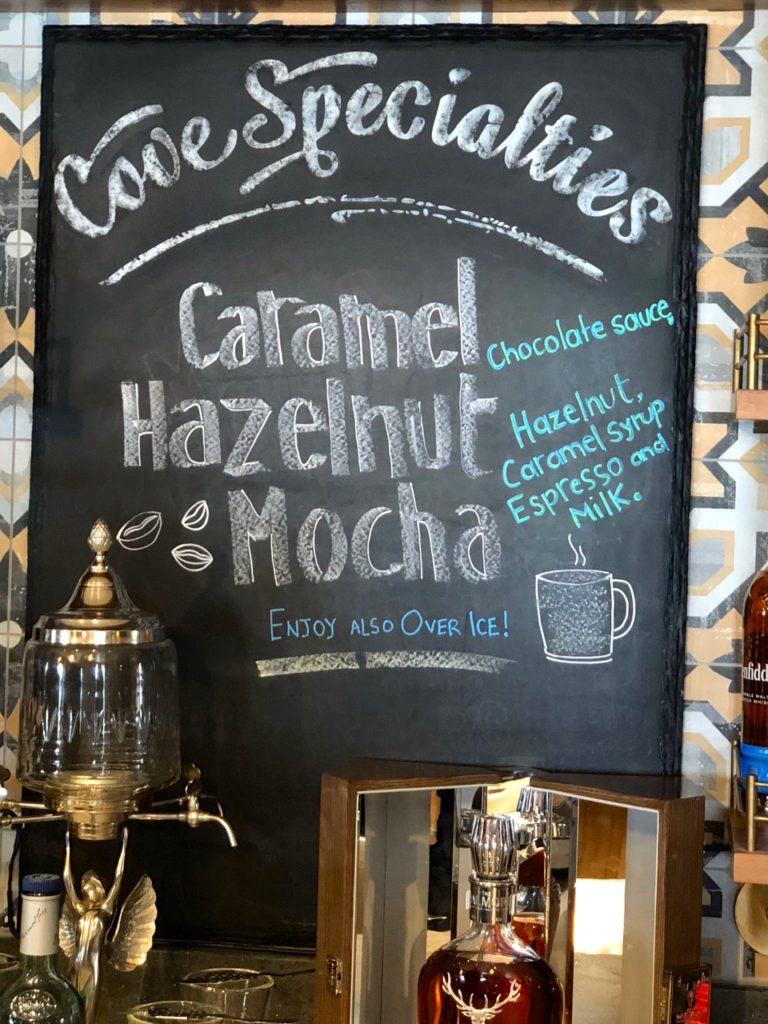 Cove Specialties
Caramel
Hazelnut
Mocha
Chocolate sauce,
Hazelnut,
Caramel syrup
Espresso and
Milk.
ENJOY ALSO OVER ICE!